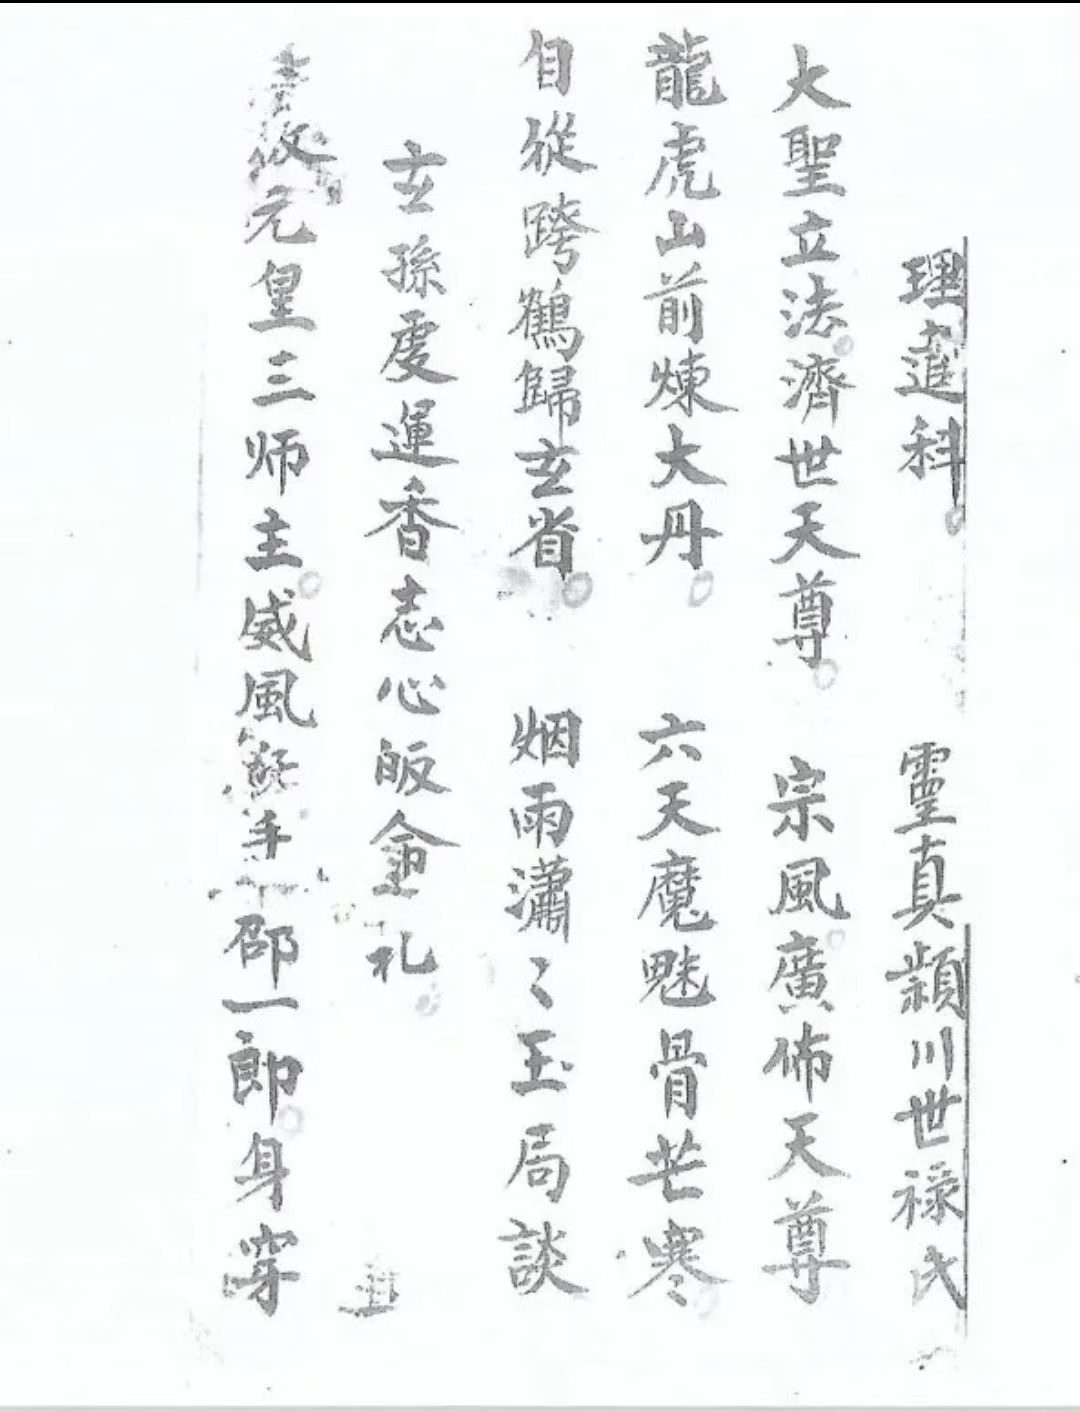 理進科 靈真頴川世禄氏
大聖立法濟世天尊 宗風廣佈天尊
龍虎山前煉大丹 六天魔魅骨芒寒
自從跨鶴歸玄省 烟雨瀟〻玉局談
玄孫虔運香志心皈 礼
元皇三师主威風 手 邵一郎身穿